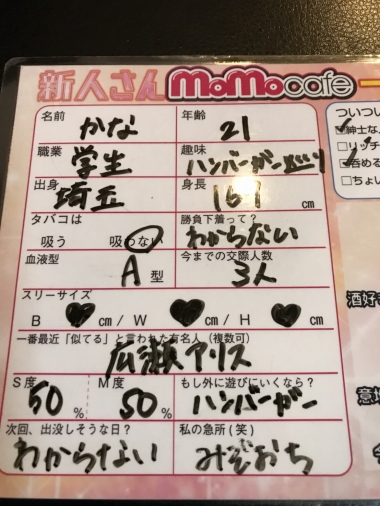 新人さん MoMocafe
名前 かな
年齢 21
職業 学生
趣味 ハンバーガー巡り
出身 埼玉
身長 167 cm
タバコは 吸う 吸わない
勝負下着って? わからない
血液型 A 型
今までの交際人数 3人
スリーサイズ
B cm / W cm / H cm
一番最近「似てる」と言われた有名人(複数可)
広瀬アリス
S度 50 %
M度 50 %
もし外に遊びにいくなら? ハンバーガー
次回、出没しそうな日? わからない
私の急所(笑) みぞおち
ついつい
紳士な
リッチ
呑める
ちょい
酒好き
意地